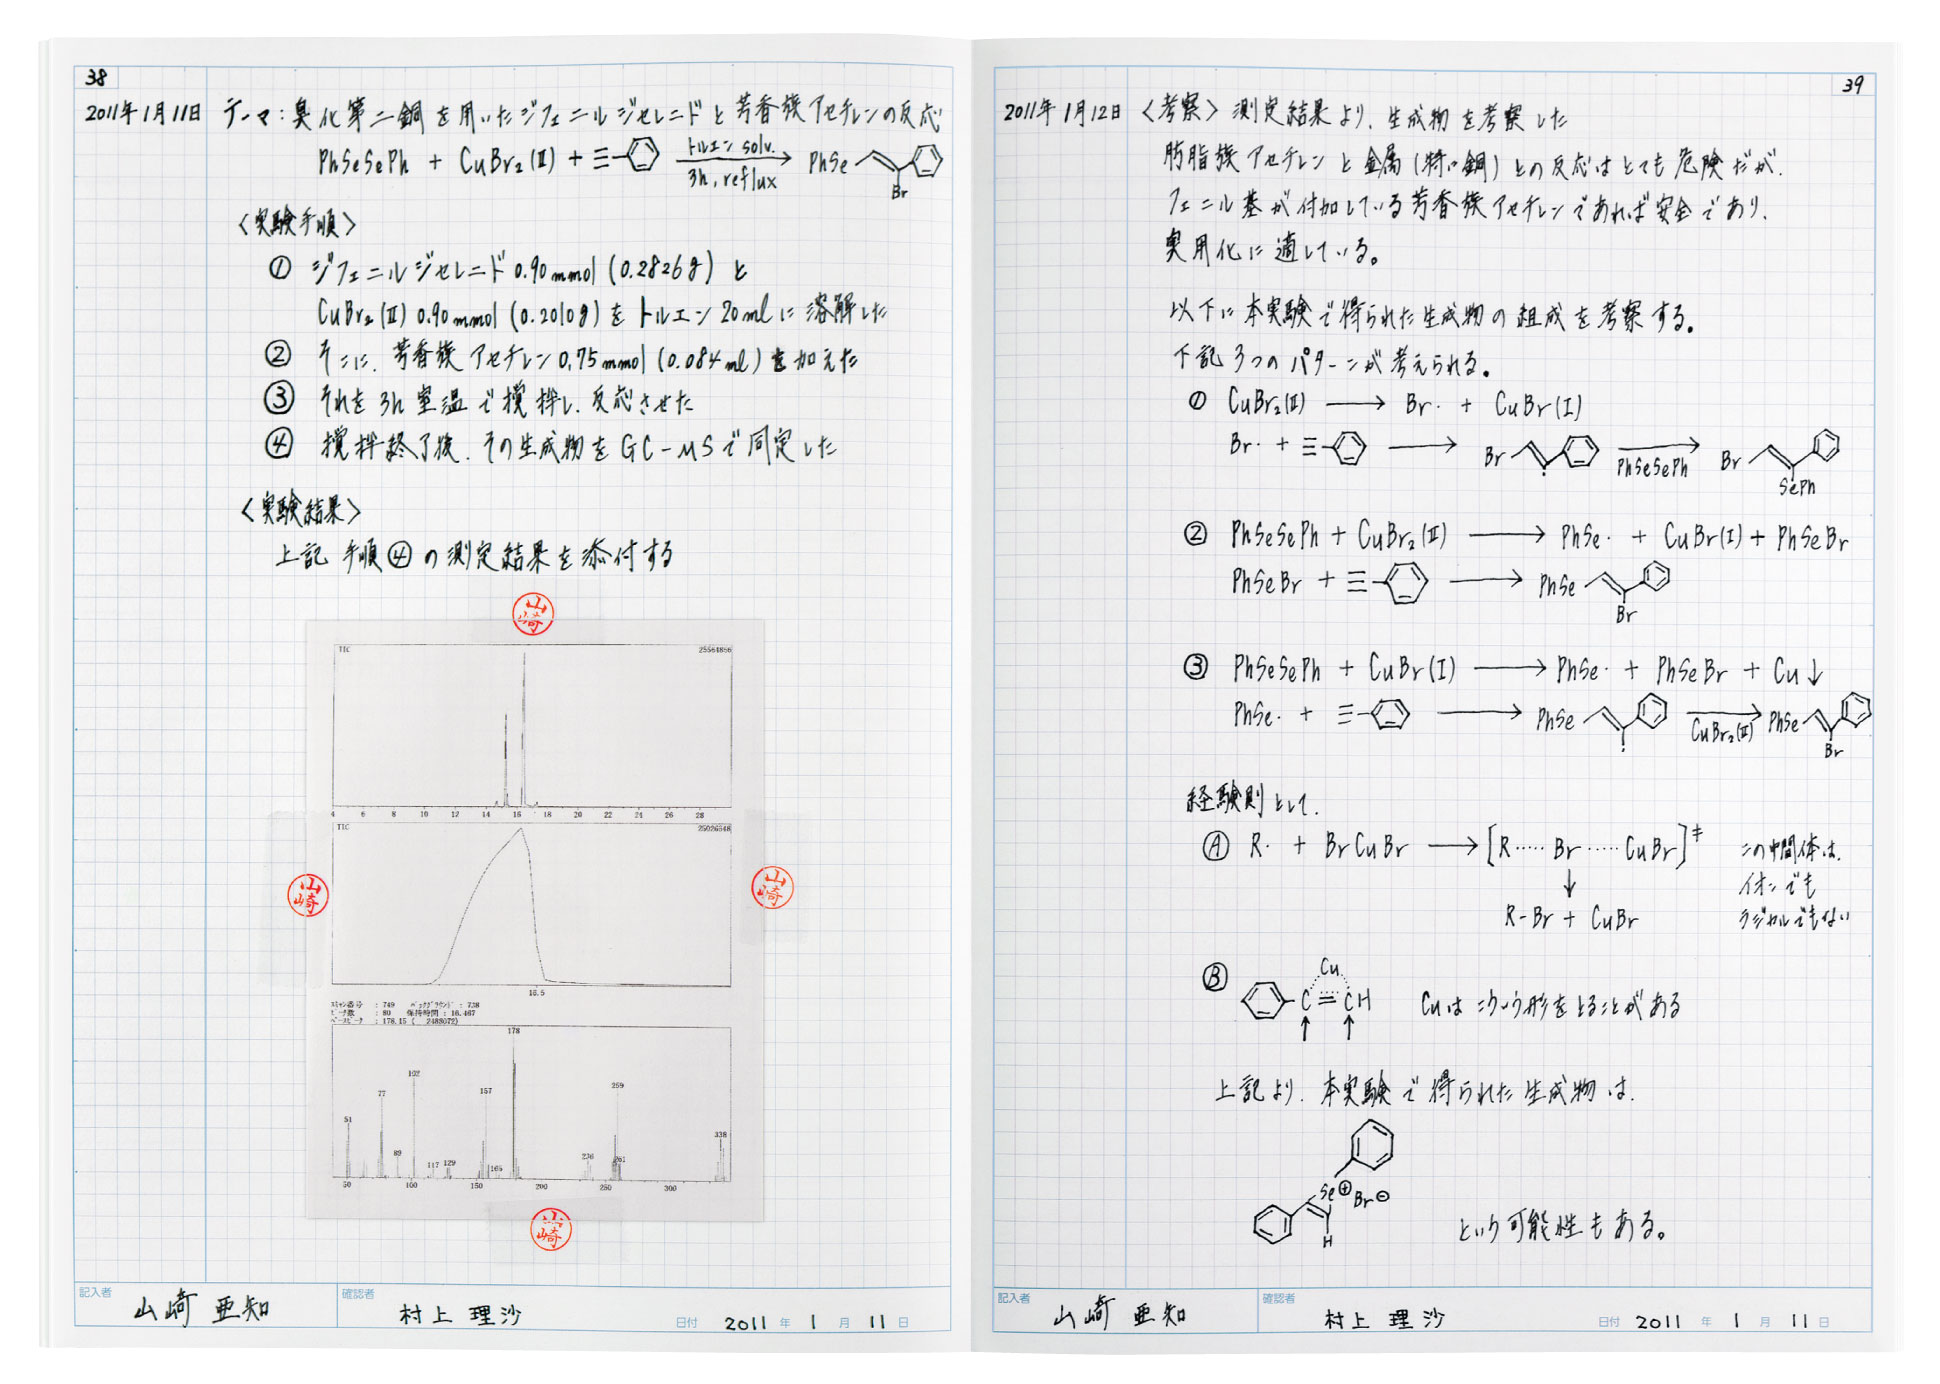 38
2011年1月11日 テーマ:臭化第二銅を用いたジフェニルジセレニドと芳香族アセチレンの反応
PhSeSePh + CuBr₂(Ⅱ) + トルエン solv. 3h, reflux PhSe Br
〈実験手順〉
① ジフェニルジセレニド 0.90mmol (0.2826g) と
CuBr₂(Ⅱ) 0.90mmol (0.2010g) を トルエン 20mlに 溶解した
② そこに、芳香族アセチレン 0.75mmol (0.084ml) を加えた
③ それを 3h 室温で攪拌し、反応させた
④ 攪拌終了後、その生成物をGC-MSで同定した
〈実験結果〉
上記 手順④の測定結果を添付する
山崎
TIC 25564856
4 6 8 10 12 14 16 18 20 22 24 26 28
TIC 25026548
山崎
山崎
16.5
スキャン番号 : 749 バックグラウンド : 738
ピーク数 : 80 保持時間 : 16.467
ベースピーク : 178.15 ( 2488072)
178
102
77
157
259
51
338
89
117 129
165
236
261
50 100 150 200 250 300
山崎
記入者 山崎 亜知 確認者 村上 理沙 日付 2011 年 1 月 11 日
39
2011年1月12日 〈考察〉測定結果より、生成物を考察した
肪脂族アセチレンと金属(特に銅)との反応はとても危険だが、
フェニル基が付加している芳香族アセチレンであれば安全であり、
実用化に適している。
以下に本実験で得られた生成物の組成を考察する。
下記3つのパターンが考えられる。
① CuBr₂(Ⅱ) → Br· + CuBr(Ⅰ)
Br· + → Br → PhSeSePh Br SePh
② PhSeSePh + CuBr₂(Ⅱ) → PhSe· + CuBr(Ⅰ) + PhSeBr
PhSeBr + → PhSe Br
③ PhSeSePh + CuBr(Ⅰ) → PhSe· + PhSeBr + Cu↓
PhSe· + → PhSe → CuBr₂(Ⅱ) PhSe Br
経験則として、
Ⓐ R· + BrCuBr → [R····· Br ····· CuBr]‡ この中間体は、
↓ イオンでも
R-Br + CuBr ラジカルでもない
Ⓑ Cu
C≡CH Cuはこういう形をとることがある
↑ ↑
上記より、本実験で得られた生成物は、
Se⊕ Br⊖
H という可能性もある。
記入者 山崎 亜知 確認者 村上 理沙 日付 2011 年 1 月 11 日